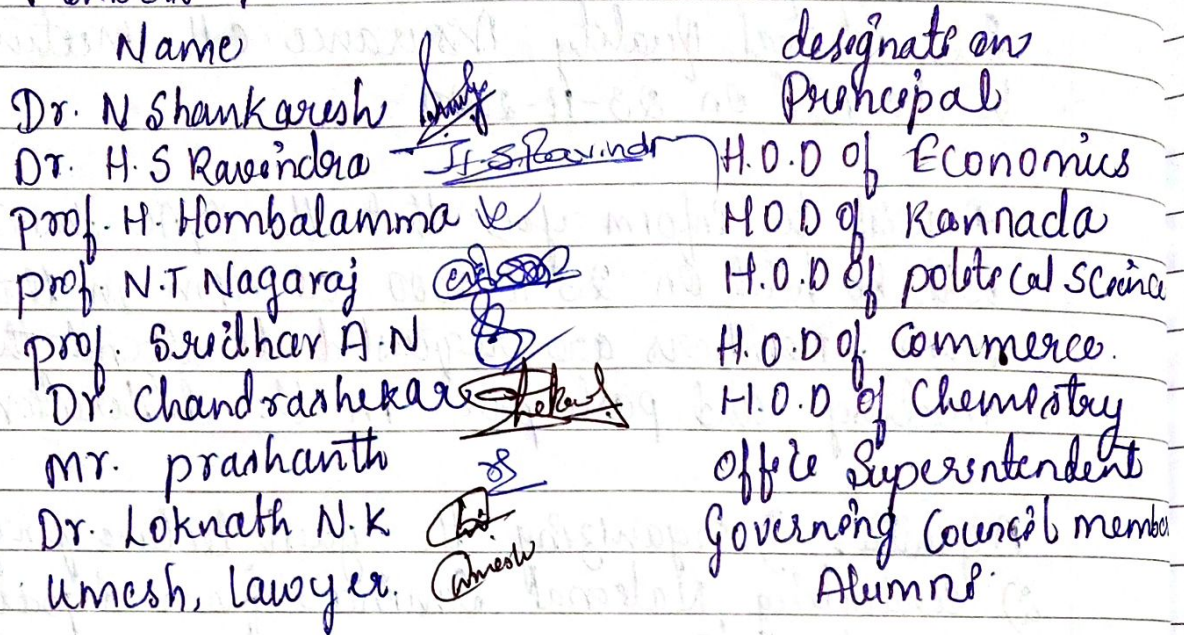 Name designation
Dr. N Shankaresh Principal
Dr. H.S Raveendra H.S.Ravindr H.O.D of Economics
prof. H. Hombalamma H.O.D of Kannada
prof N.T Nagaraj H.O.D of political Science
prof. Sridhar A.N H.O.D of Commerce.
Dr. Chandrashekar Shekar H.O.D of Chemistry
Mr. prashanth office Superintendent
Dr. Loknath N.K Governing Council membe
Umesh, lawyer. Umesh Alumni